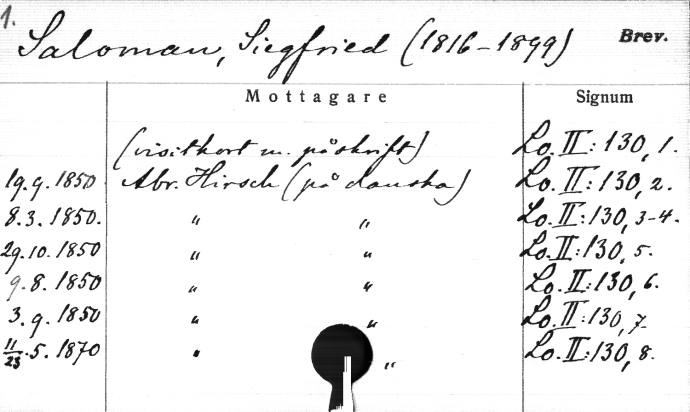 1.
Saloman, Siegfried (1816-1899) Brev.
Mottagare Signum
(visitkort m. påskrift) Lo. II: 130, 1.
19.9. 1850 Abr. Hirsch (på danska) Lo. II: 130, 2.
8.3. 1850. " " Lo. II: 130, 3-4.
29.10. 1850 " " Lo. II: 130, 5.
9.8. 1850 " " Lo. II: 130, 6.
3.9. 1850 " " Lo. II: 130, 7.
11/23.5. 1870 " " Lo. II: 130, 8.